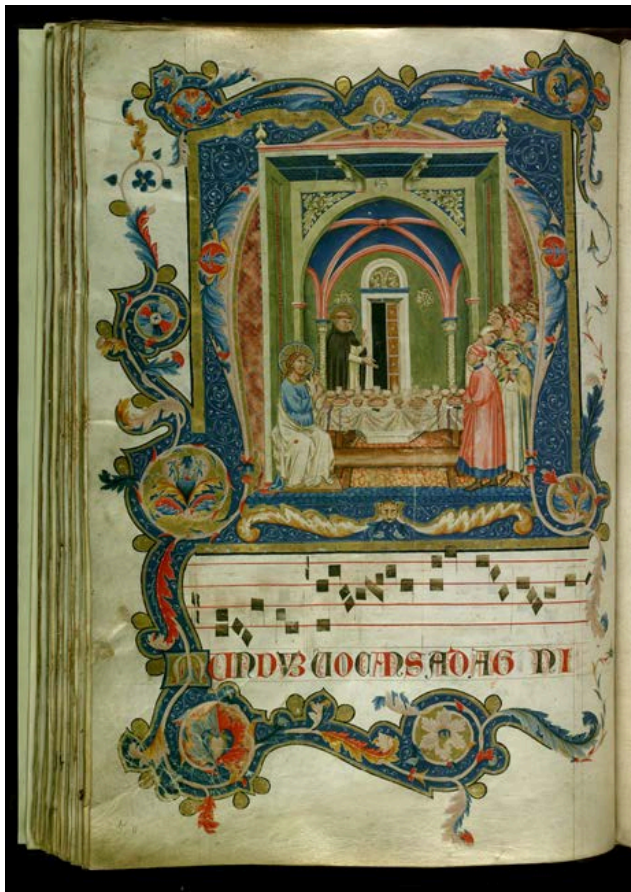 MUNDVꝫ UOCANS AD AG NI